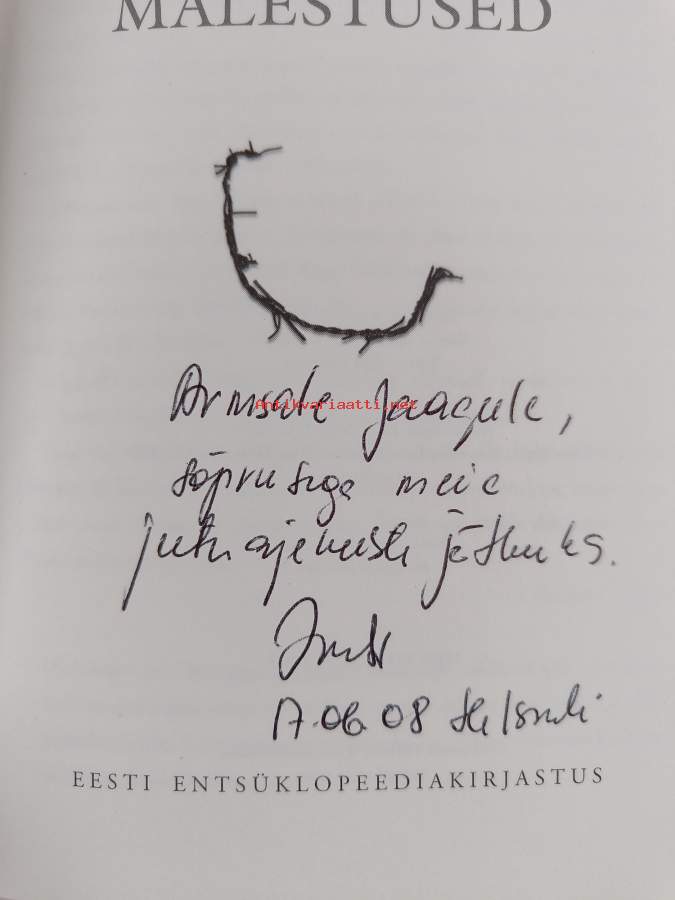 MÄLESTUSED
Armsale Jaagule,
Antikvariaatti.net
sõprusega meie
jutuajamiste jätkuks.
17.06.08 Helsinki
EESTI ENTSÜKLOPEEDIAKIRJASTUS